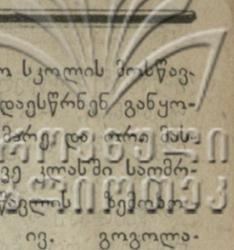 ო სკოლის მოსწავ-
დაესწრნენ განყო-
მარე, და ორი მას-
ვე კლასში საღმრ-
სწავლის ზემოხო-
ივ. გოგოლა-